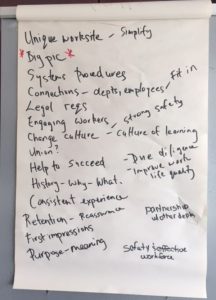 Unique worksite - Simplify
*Big pic*
Systems procedures
Connections - depts, employees/ fit in
Legal reqs
Engaging workers - strong safety
Change culture - culture of learning
Union?
Help to Succeed - Due diligence
- Improve work life quality
History - Why - What.
Consistent experience
Retention - Reassurance
partnership w/other depts
First impressions
Purpose - meaning
Safety & effective workforce